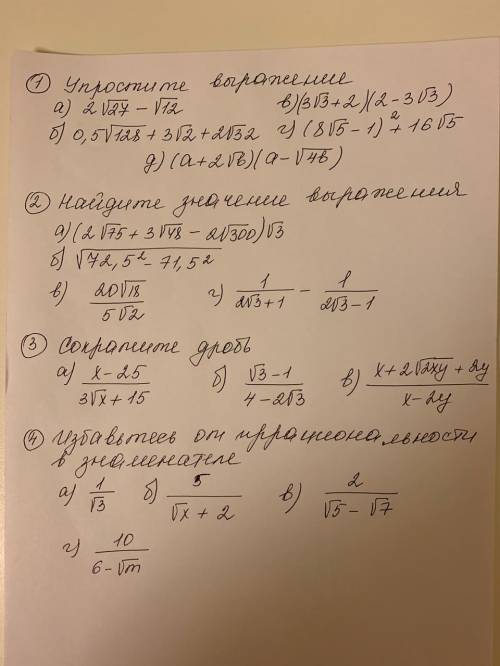 ① Упростите выражение
а) 2√27 − √12 в) (3√3+2)(2−3√3)
б) 0,5√128 + 3√2 + 2√32 г) (8√5−1)² + 16√5
д) (a+2√b)(a−√4b)
② Найдите значение выражения
а) (2√75 + 3√48 − 2√300)√3
б) √(72,5² − 71,5²)
в) 20√18 / 5√2 г) 1/(2√3+1) − 1/(2√3−1)
③ Сократите дробь
а) (x−25)/(3√x+15) б) (√3−1)/(4−2√3) в) (x+2√2xy+2y)/(x−2y)
④ Избавьтесь от иррациональности
в знаменателе
а) 1/√3 б) 5/(√x+2) в) 2/(√5−√7)
г) 10/(6−√m)